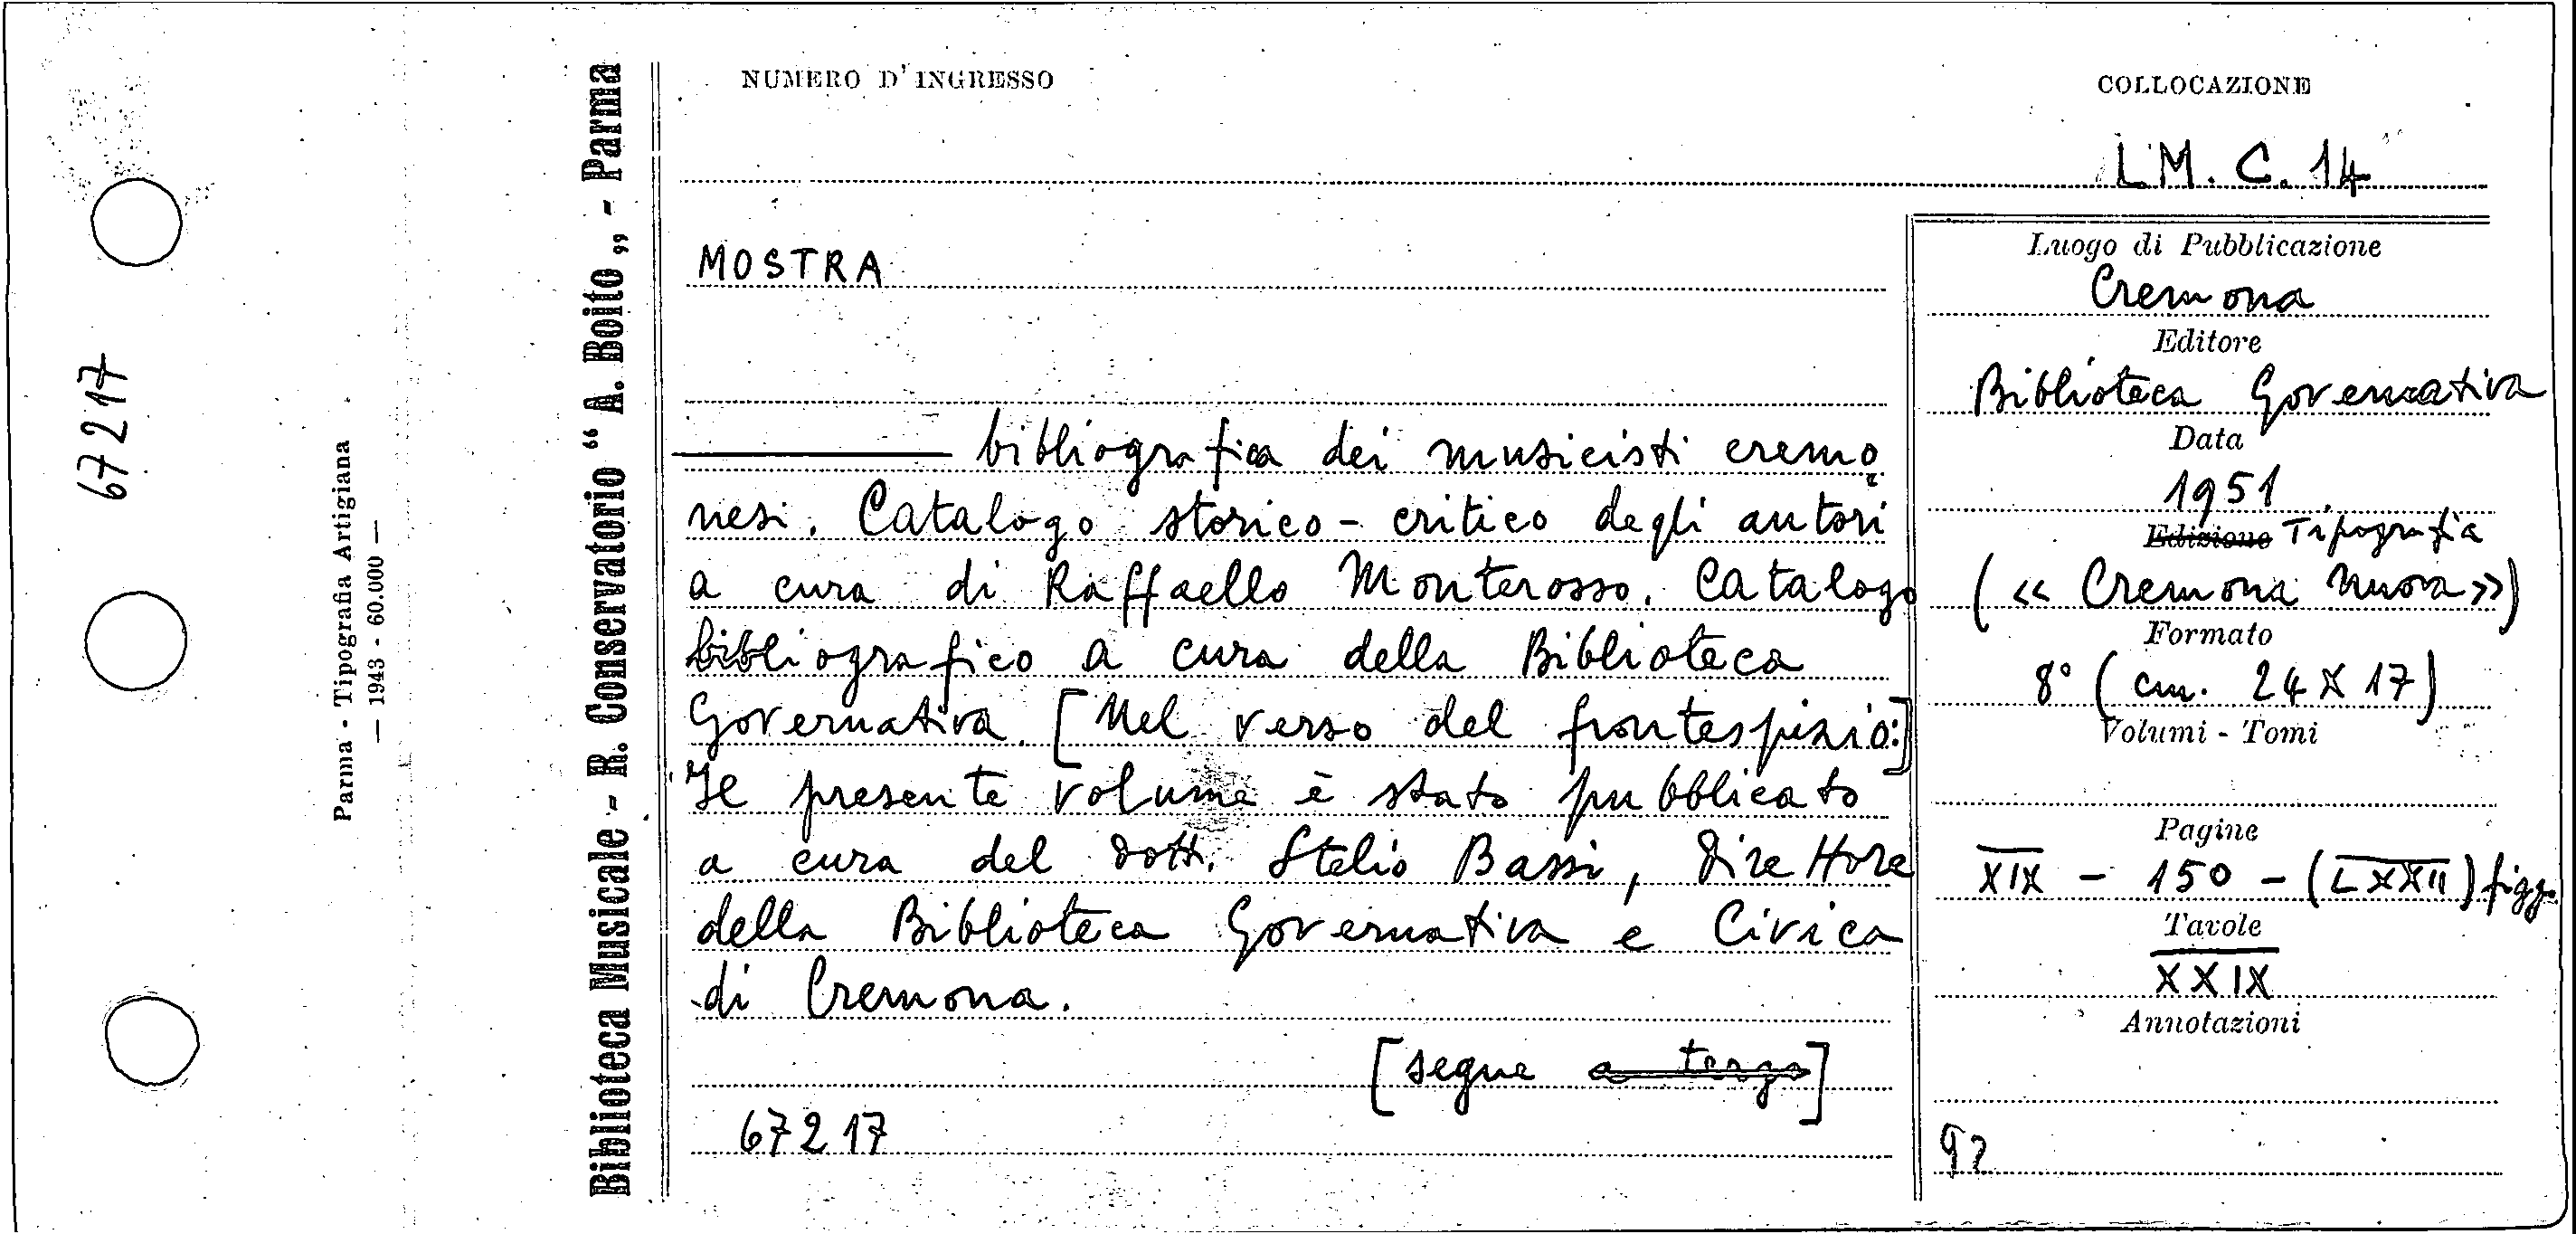 67217
Parma - Tipografia Artigiana
— 1943 - 60.000 —
Biblioteca Musicale - R. Conservatorio “ A. Boito „ - Parma
NUMERO D' INGRESSO
COLLOCAZIONE
LM. C. 14
MOSTRA
bibliografica dei musicisti cremo
nesi. Catalogo storico-critico degli autori
a cura di Raffaello Monterosso. Catalogo
bibliografico a cura della Biblioteca
Governativa. [Nel verso del frontespizio:]
Il presente volume è stato pubblicato
a cura del dott. Stelio Bassi, Direttore
della Biblioteca Governativa e Civica
di Cremona.
[segue a tergo]
67217
Luogo di Pubblicazione
Cremona
Editore
Biblioteca Governativa
Data
1951
Edizione Tipografia
(« Cremona Nuova »)
Formato
8° (cm. 24 X 17)
Volumi - Tomi
Pagine
XIX - 150 - (LXXII) figg.
Tavole
XXIX
Annotazioni